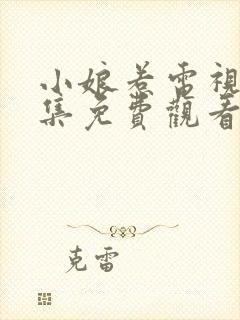 小娘惹電視
集免費觀看
克雷